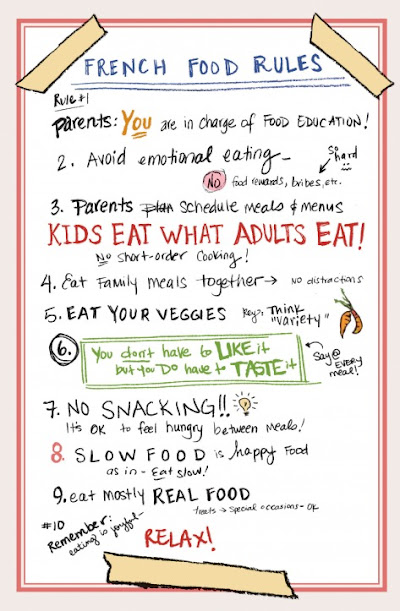 FRENCH FOOD RULES
Rule #1
Parents: You are in charge of FOOD EDUCATION!
2. Avoid emotional eating-
So hard
NO food rewards, bribes, etc.
3. Parents plan Schedule meals & menus
KIDS EAT WHAT ADULTS EAT!
No short-order cooking!
4. Eat Family meals together → NO distractions
5. EAT YOUR VEGGIES Key: Think "Variety"
6. You don't have to LIKE it
but you DO have to TASTE it
Say @ EVERY meal!
7. NO SNACKING!!
It's OK to feel hungry between meals!
8. SLOW FOOD is happy Food
as in - Eat slow!
9. eat mostly REAL FOOD
treats → Special occasions - OK
#10
Remember:
eating is joyful-
RELAX!